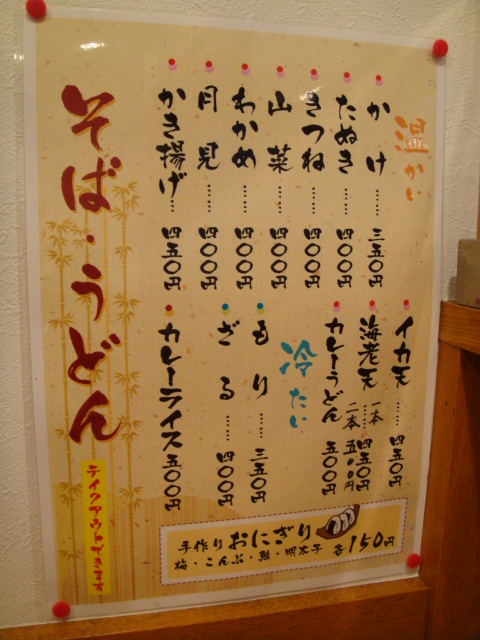 そば・うどん
温かい
かけ……三五〇円
たぬき……四〇〇円
きつね……四〇〇円
山菜……四〇〇円
わかめ……四〇〇円
月見……四〇〇円
かき揚げ…四五〇円
イカ天……四五〇円
海老天 一本 四五〇円
二本 五五〇円
カレーうどん 五〇〇円
冷たい
もり……三五〇円
ざる……四〇〇円
カレーライス 五〇〇円
テイクアウトできます
手作り おにぎり
梅・こんぶ・鮭・明太子 各150円